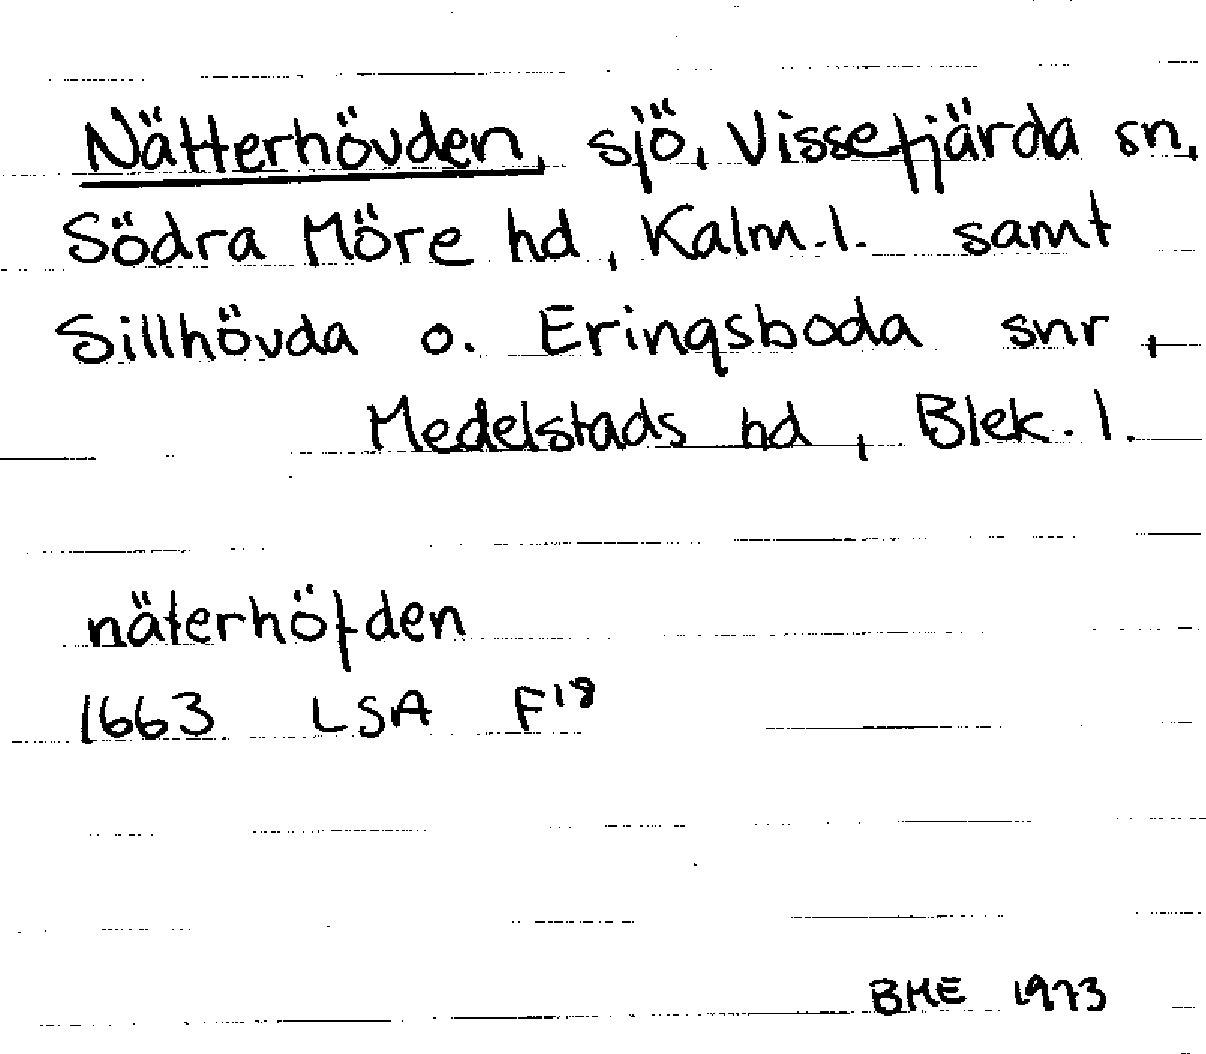 Nätterhövden, sjö, Vissefjärda sn,
Södra Möre hd, Kalm.l. samt
Sillhövda o. Eringsboda snr,
Medelstads hd, Blek. l.
näterhöfden
1663 LSA F18
BME 1973